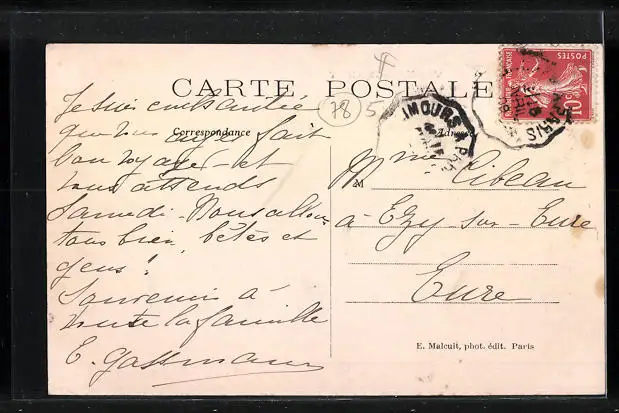 CARTE POSTALE
78
5
Correspondance
Adresse
Je suis enchantée
que vous ayez fait
bon voyage et
vous attends
Samedi. Nous allons
tous bien, bêtes et
gens!
Souvenir à
toute la famille
E. Gassmann
POSTES
10
LIMOURS A PARIS
PARIS
M
Mme Libeau
à Ezy-sur-Eure
Eure
E. Malcuit, phot. édit. Paris